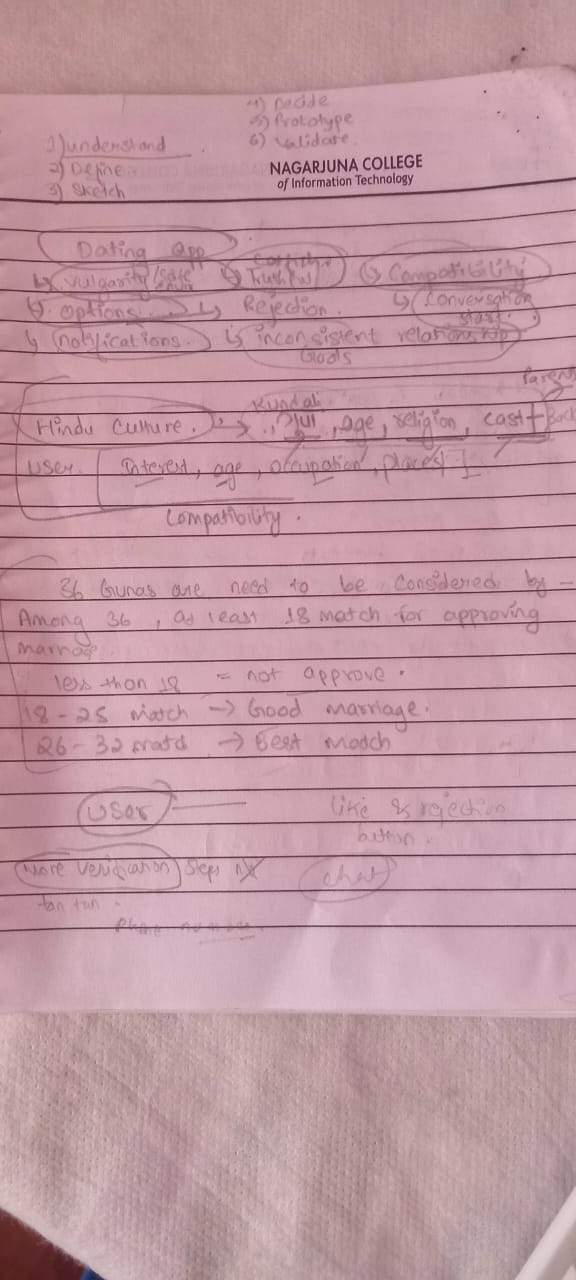 4) Decide
5) Prototype
6) Validate
1) understand
2) Define
3) Sketch
NAGARJUNA COLLEGE
of Information Technology
Dating app
↳ Vulgarity / Safe ↳ Truthful ↳ Compatibility
↳ options. ↳ Rejection. ↳ Conversation
start.
↳ notifications. ↳ inconsistent relationship
Goals
Parent
Kundali
Hindu Culture. → , age, religion, cast + Back
user. Interest, age, occupation, places
Compatibility.
36 Gunas are need to be Considered by -
Among 36, at least 18 match for approving
marriage.
less than 18 = not approve.
18 - 25 match → Good marriage.
26 - 32 match → Best match
user like & rejection
button.
more verification steps chat
tan tan.
Phone number.